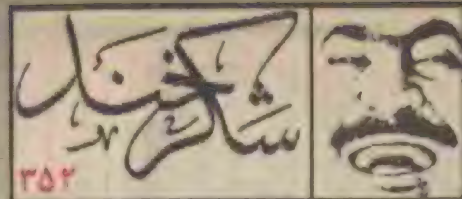 شکرخند
۳۵۲